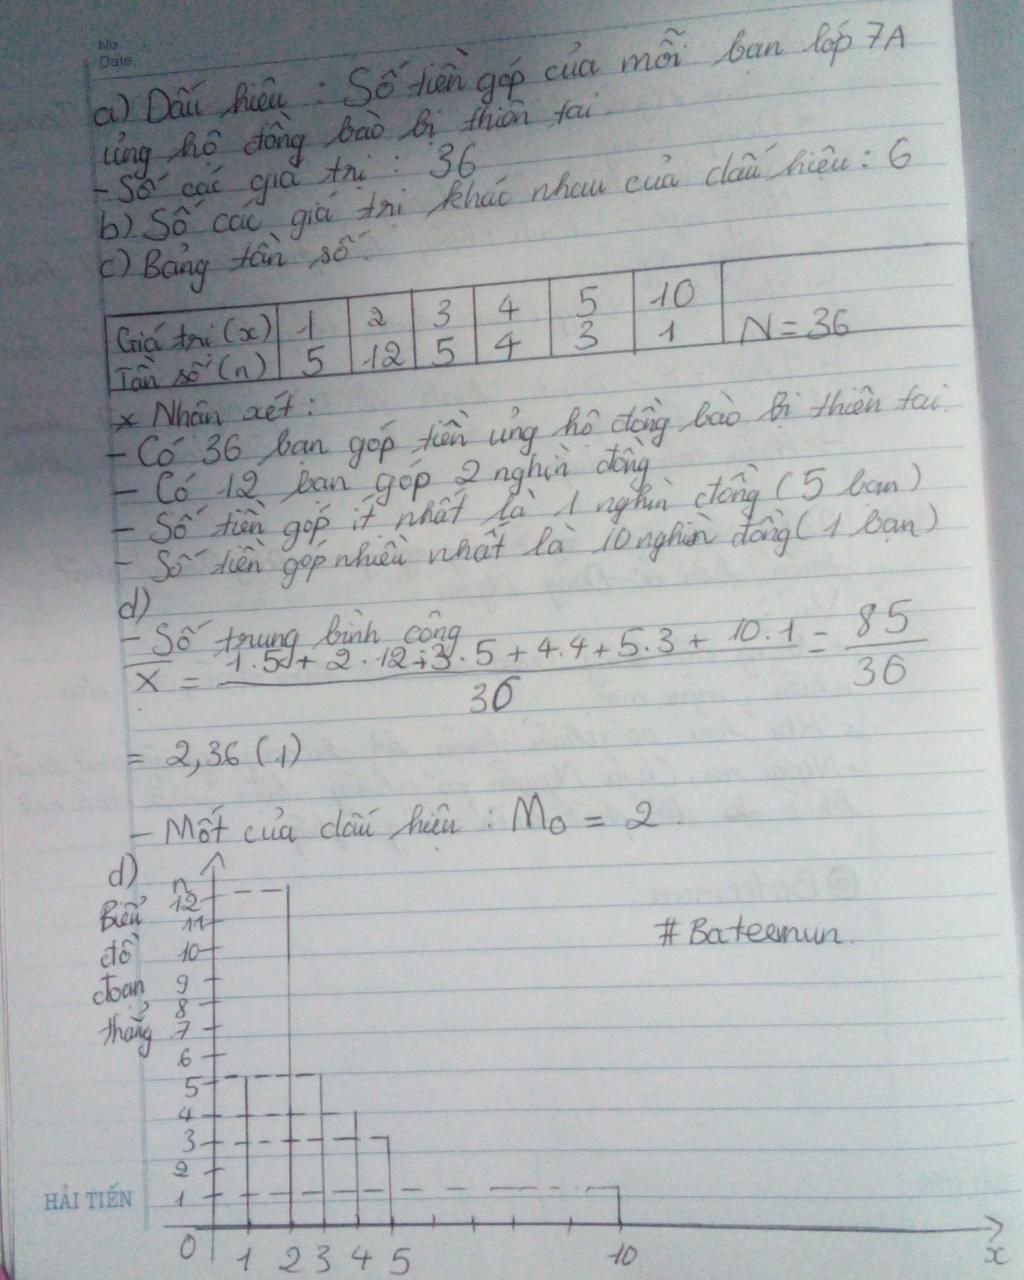 No.
Date
a) Dấu hiệu : Số tiền góp của mỗi bạn lớp 7A
ủng hộ đồng bào bị thiên tai
- Số các giá trị : 36
b) Số các giá trị khác nhau của dấu hiệu : 6
c) Bảng tần số :
Giá trị (x) 1 2 3 4 5 10
Tần số (n) 5 12 5 4 3 1 N = 36
* Nhận xét :
- Có 36 bạn góp tiền ủng hộ đồng bào bị thiên tai.
- Có 12 bạn góp 2 nghìn đồng
- Số tiền góp ít nhất là 1 nghìn đồng (5 bạn)
- Số tiền góp nhiều nhất là 10 nghìn đồng (1 bạn)
d)
- Số trung bình cộng
X = 1.5 + 2.12 + 3.5 + 4.4 + 5.3 + 10.1 / 36 = 85 / 36
= 2,36 (1)
- Mốt của dấu hiệu : M₀ = 2
d) Biểu đồ đoạn thẳng
#Bateemun.
n
12
11
10
9
8
7
6
5
4
3
2
1
0 1 2 3 4 5 10 x
HẢI TIẾN